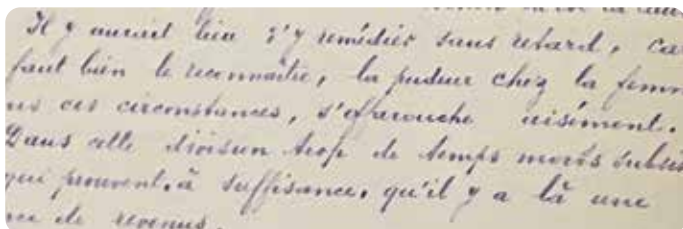 Il y aurait lieu d'y remédier sans retard, ca
faut bien le reconnaître, la pudeur chez la femm
ns ces circonstances, s'effarouche aisément.
Dans cette division trop de temps morts subsis
qui prouvent, à suffisance, qu'il y a là une
ce de revenus.